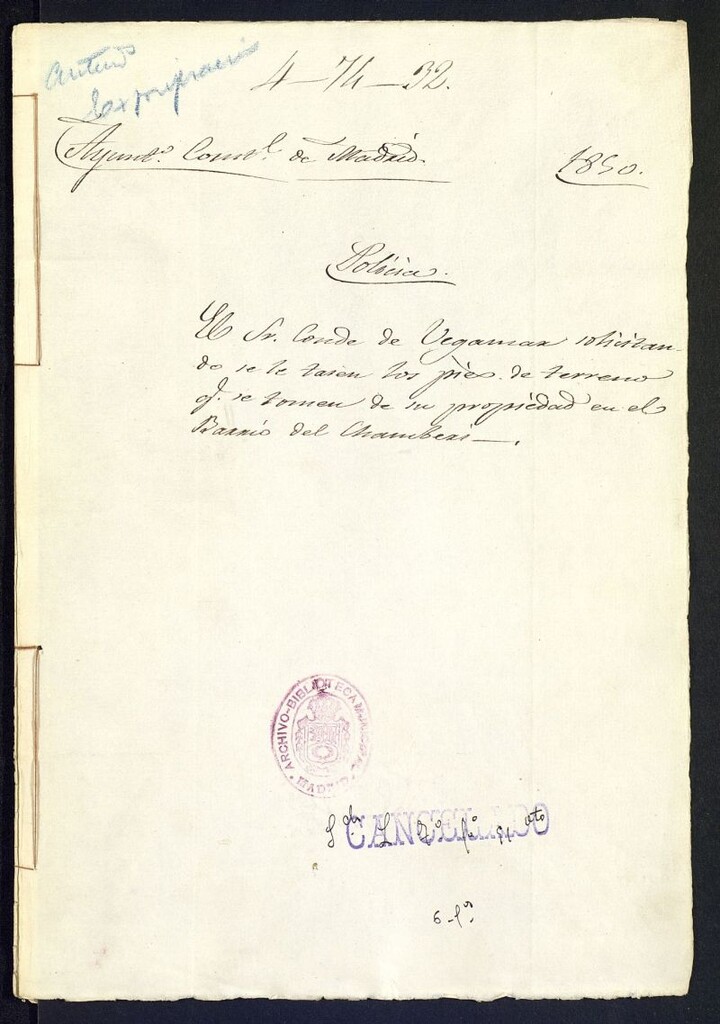 4-74-32.
Ayunt.º Const.l de Madrid. 1850.
Policia.
El Sr. Conde de Vegamar solicitan-
do se le tasen los pies de terreno
q.e se tomen de su propiedad en el
Barrio del Chamberi—.
ARCHIVO-BIBLIOTECA MUNICIPAL
MADRID
CANCELADO